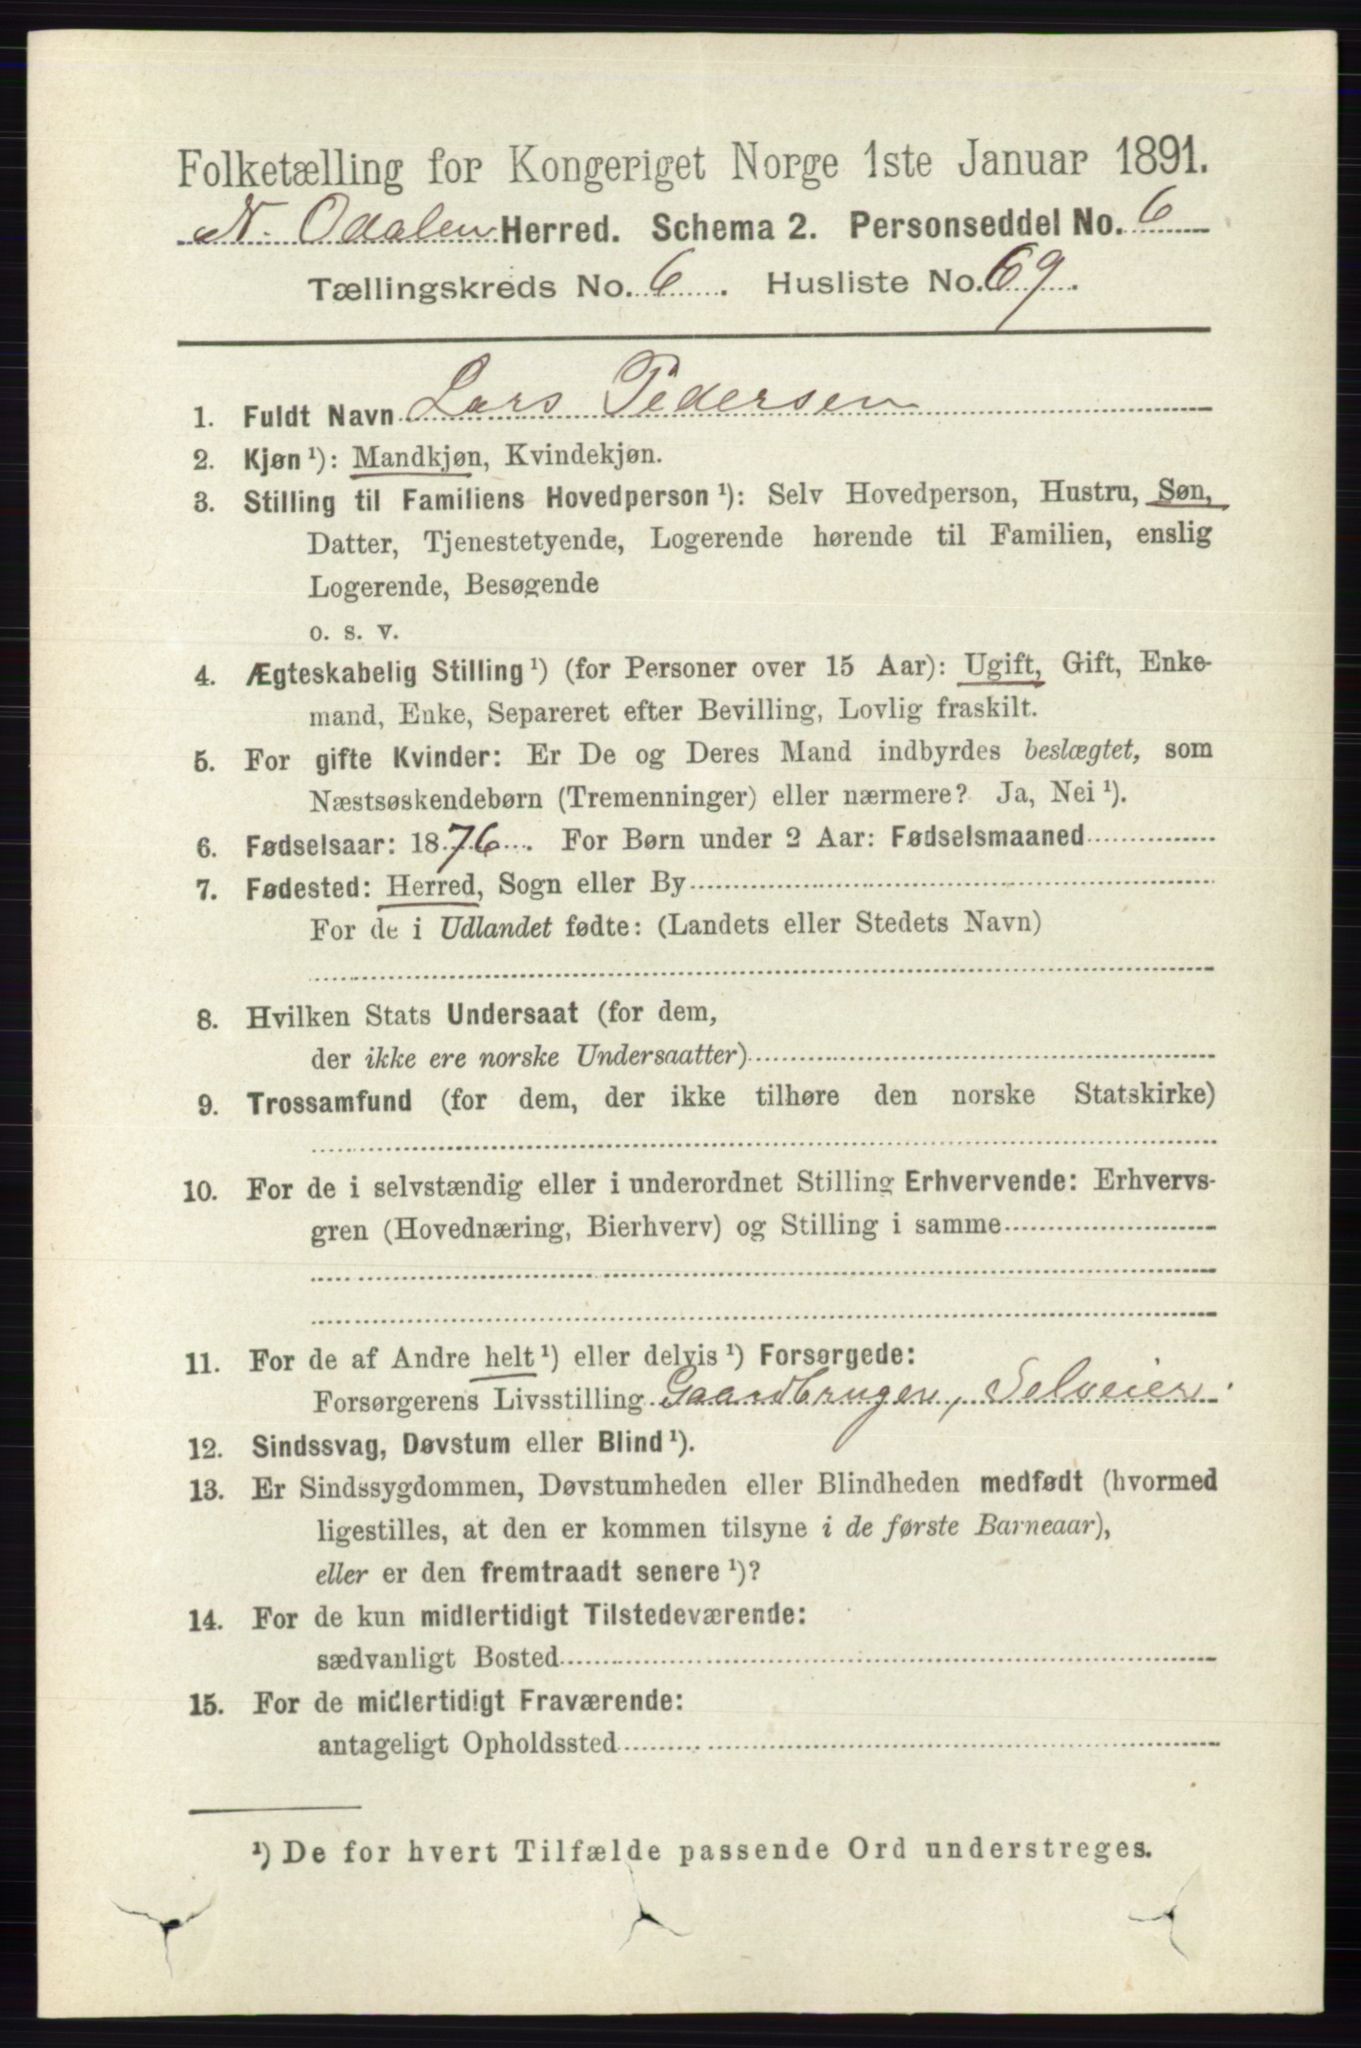 Folketælling for Kongeriget Norge 1ste Januar 1891.
N. Odalen Herred. Schema 2. Personseddel No. 6
Tællingskreds No. 6. Husliste No. 69.
1. Fuldt Navn Lars Pedersen
2. Kjøn ¹): Mandkjøn, Kvindekjøn.
3. Stilling til Familiens Hovedperson ¹): Selv Hovedperson, Hustru, Søn,
Datter, Tjenestetyende, Logerende hørende til Familien, enslig
Logerende, Besøgende
o. s. v.
4. Ægteskabelig Stilling ¹) (for Personer over 15 Aar): Ugift, Gift, Enke-
mand, Enke, Separeret efter Bevilling, Lovlig fraskilt.
5. For gifte Kvinder: Er De og Deres Mand indbyrdes beslægtet, som
Næstsøskendebørn (Tremenninger) eller nærmere? Ja, Nei ¹).
6. Fødselsaar: 1876. For Børn under 2 Aar: Fødselsmaaned
7. Fødested: Herred, Sogn eller By
For de i Udlandet fødte: (Landets eller Stedets Navn)
8. Hvilken Stats Undersaat (for dem,
der ikke ere norske Undersaatter)
9. Trossamfund (for dem, der ikke tilhøre den norske Statskirke)
10. For de i selvstændig eller i underordnet Stilling Erhvervende: Erhvervs-
gren (Hovednæring, Bierhverv) og Stilling i samme
11. For de af Andre helt ¹) eller delvis ¹) Forsørgede:
Forsørgerens Livsstilling Gaardbruger, Selveier.
12. Sindssvag, Døvstum eller Blind ¹).
13. Er Sindssygdommen, Døvstumheden eller Blindheden medfødt (hvormed
ligestilles, at den er kommen tilsyne i de første Barneaar),
eller er den fremtraadt senere ¹)?
14. For de kun midlertidigt Tilstedeværende:
sædvanligt Bosted
15. For de midlertidigt Fraværende:
antageligt Opholdssted
¹) De for hvert Tilfælde passende Ord understreges.